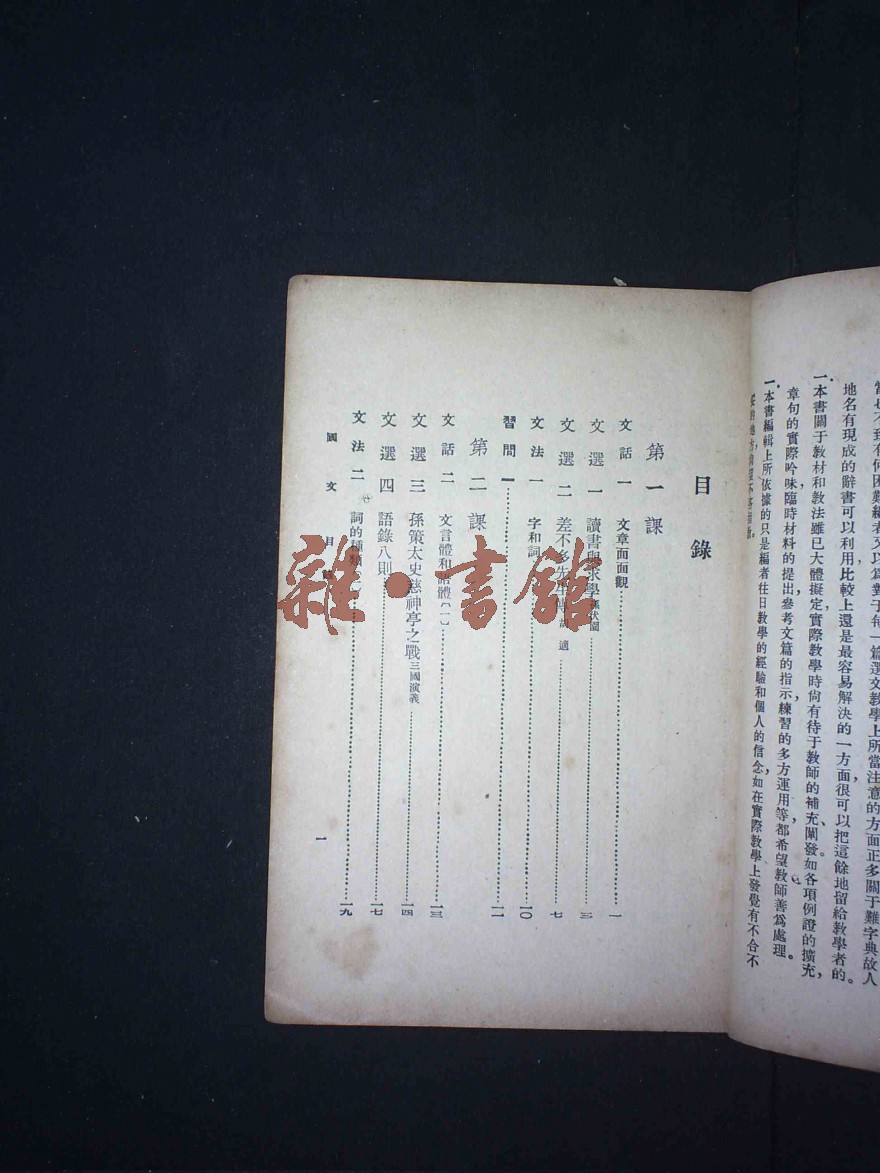 當也不致有何困難編者又以爲對于每一篇選文教學上所當注意的方面正多關于難字典故人
地名有現成的辭書可以利用比較上還是最容易解決的一方面很可以把這餘地留給教學者的。
一．本書關于教材和教法雖已大體擬定實際教學時尙有待于教師的補充、闡發如各項例證的擴充，
章句的實際吟味臨時材料的提出參考文篇的指示練習的多方運用等，都希望教師善爲處理。
一．本書編輯上所依據的只是編者往日教學的經驗和個人的信念，如在實際教學上發覺有不合不
目錄
第一課
文話一 文章面面觀 一
文選一 讀書與求學 孫伏園 三
文選二 差不多先生傳 胡適 七
文法一 字和詞 一〇
習問一 一二
第二課
文話二 文言體和語體(一) 一三
文選三 孫策太史慈神亭之戰 三國演義 一四
文選四 語錄八則 一七
文法二 詞的種類 一九
國文 目錄 一
雜·書館